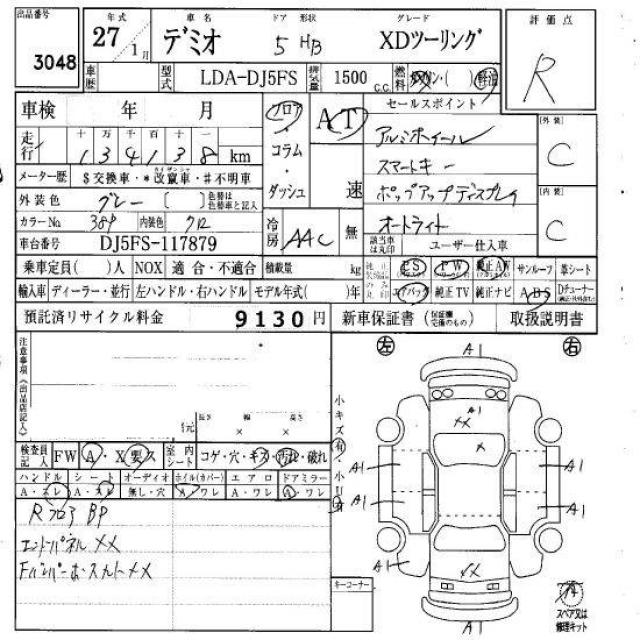 出品番号 3048
年式 27年 1月
車名 デミオ
ドア 形状 5 HB
グレード XDツーリング
評価点 R
車歴
型式 LDA-DJ5FS
排気量 1500 C.C.
燃料 ( ) 軽油
車検 年 月
フロア・コラム・ダッシュ
AT
速
セールスポイント
アルミホイール
スマートキー
ポップアップディスプレイ
オートライト
[外装] C
[内装] C
走行 十 万 千 百 十 一
134138 km
メーター歴 $交換車・*改竄車・#不明車
外装色 グレー [ ] 色替は色替車と記入
カラーNo 38P 内装色 クロ
車台番号 DJ5FS-117879
冷房 AAC 無
該当車は丸印 ユーザー仕入車
乗車定員( )人 NOX 適合・不適合 積載量 kg
PS PW 純正AW サンルーフ 革シート
輸入車 ディーラー・並行 左ハンドル・右ハンドル モデル年式( )年
エアバッグ 純正TV 純正ナビ ABS Dチューナー
預託済リサイクル料金 9130円
新車保証書 取扱説明書
注意事項(出品店記入)
長さ 幅 高さ
× ×
小キズ有・小凹有
左 右
検査員記入 FW A・X 要ス
室内シート コゲ・穴・キズ・汚れ・破れ
ハンドル シート オーディオ ホイル(カバー) エアロ ドアミラー
A・スレ A・スレ 無し・穴 A・ワレ A・ワレ A・ワレ
Rフロア BP
エンドパネル XX
FバンパーホースカートXX
キーコーナー
A1
A1
XX
X
A1 A1
A1 A1
A1
XX
A1
スペア又は修理キット